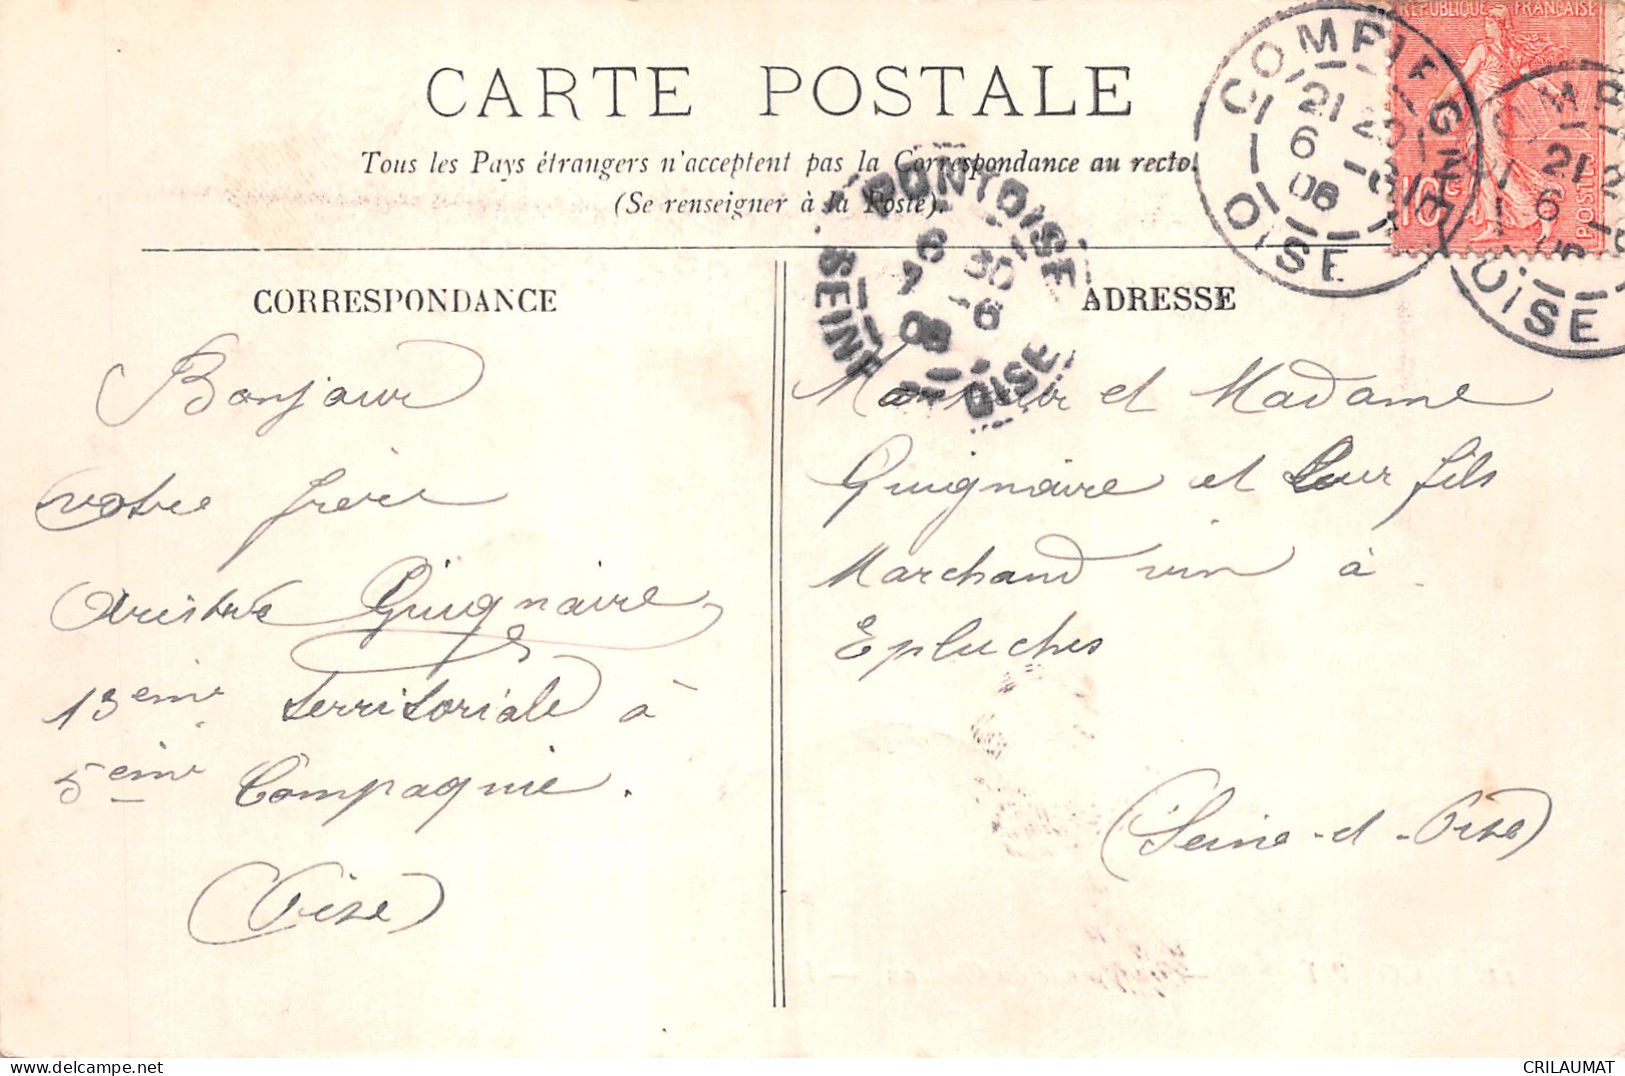 CARTE POSTALE
Tous les Pays étrangers n'acceptent pas la Correspondance au recto.
(Se renseigner à la Poste).
RÉPUBLIQUE FRANÇAISE
10c
POSTES
COMPIEGNE
21 20
6
06
OISE
PONTOISE
6 30
-6
06
SEINE
OISE
CORRESPONDANCE
Bonjour
votre frère
Guignaire
13ème territoriale à
5ème Compagnie.
(Oise)
ADRESSE
Monsieur et Madame
Guignaire et Leur fils
Marchand vin à
Epluches
(Seine-et-Oise)
CRILAUMAT